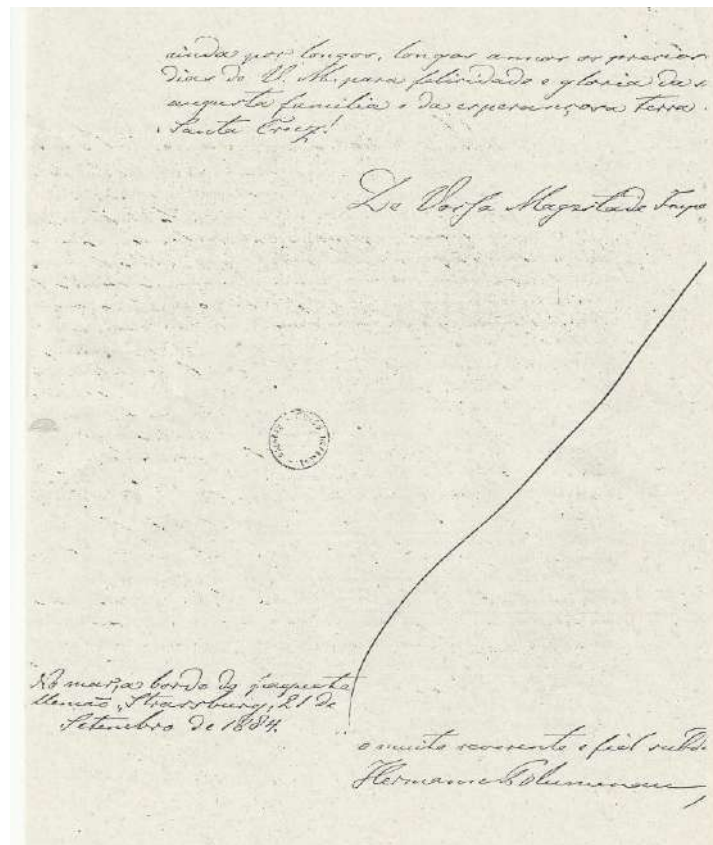 ainda por longos, longos annos os precios
dias de V. M. para felicidade e gloria da s
augusta familia e da esperançosa terra
Santa Cruz!
De Vossa Magestade Impe
No mar, a bordo do paquete
Alemão, Strassburg, 21 de
Setembro de 1884.
o muito reverente e fiel subd
Hermann Blumenau